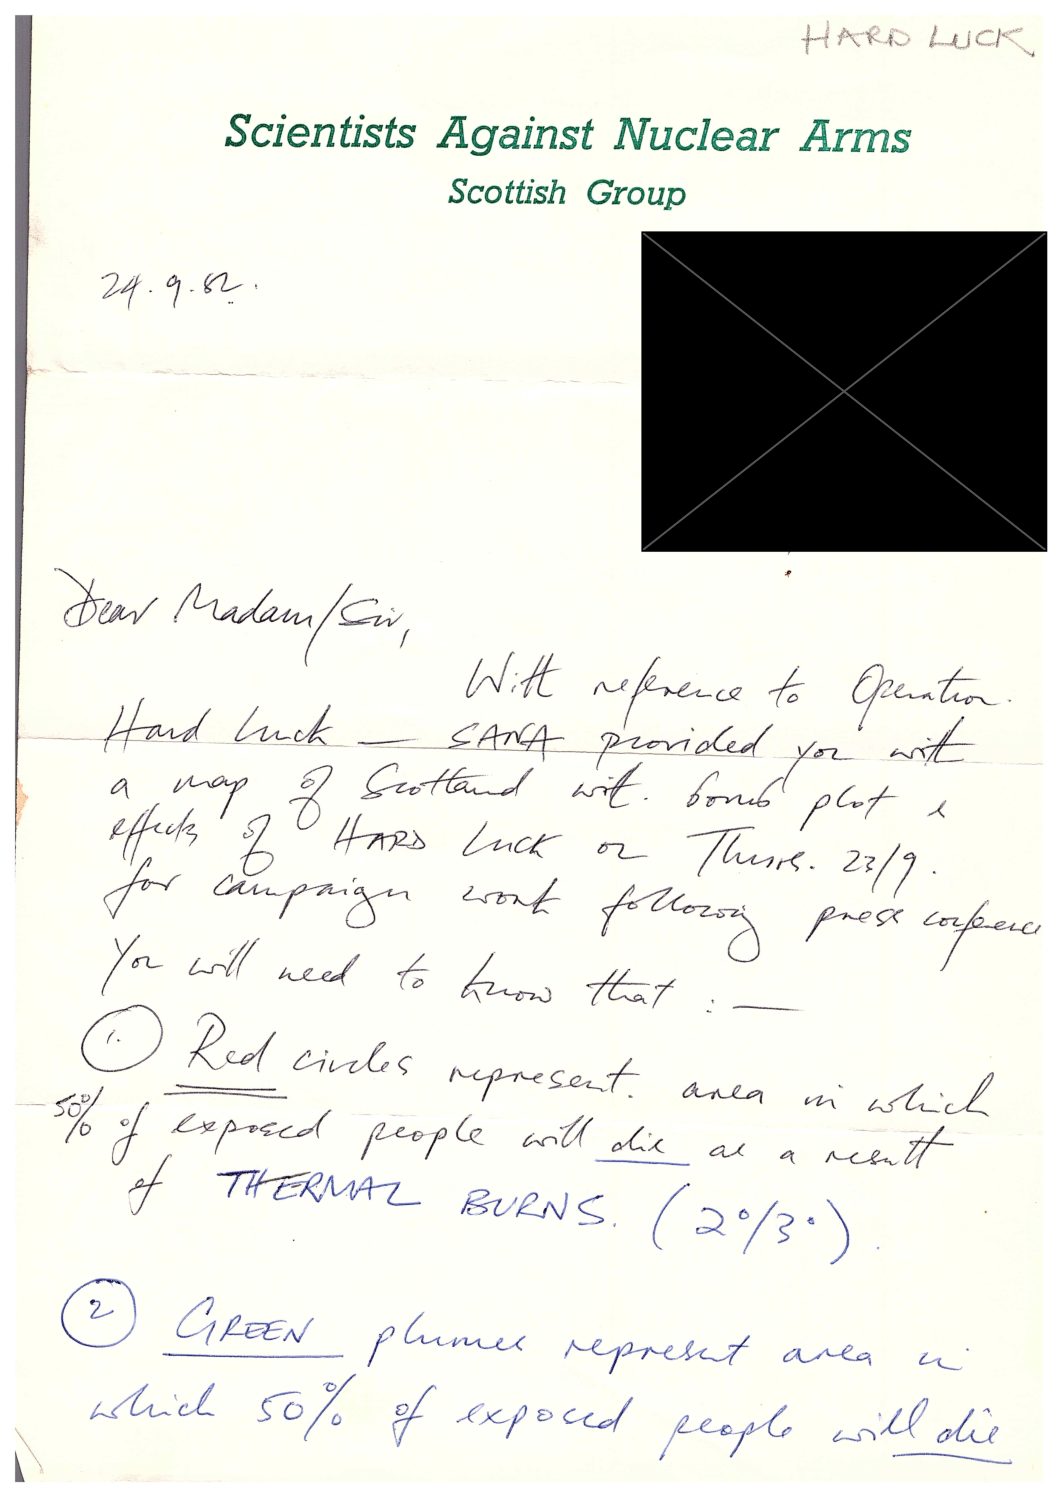 HARD LUCK
Scientists Against Nuclear Arms
Scottish Group
24.9.82.
Dear Madam/Sir,
With reference to Operation.
Hard Luck — SANA provided you with
a map of Scotland wit. bomb plot &
effects of HARD LUCK on Thurs. 23/9.
for campaign work following press conference
You will need to know that : —
1. Red circles represent. area in which
50% of exposed people will die as a result
of THERMAL BURNS. (2°/3°).
2 GREEN plumes represent area in
which 50% of exposed people will die